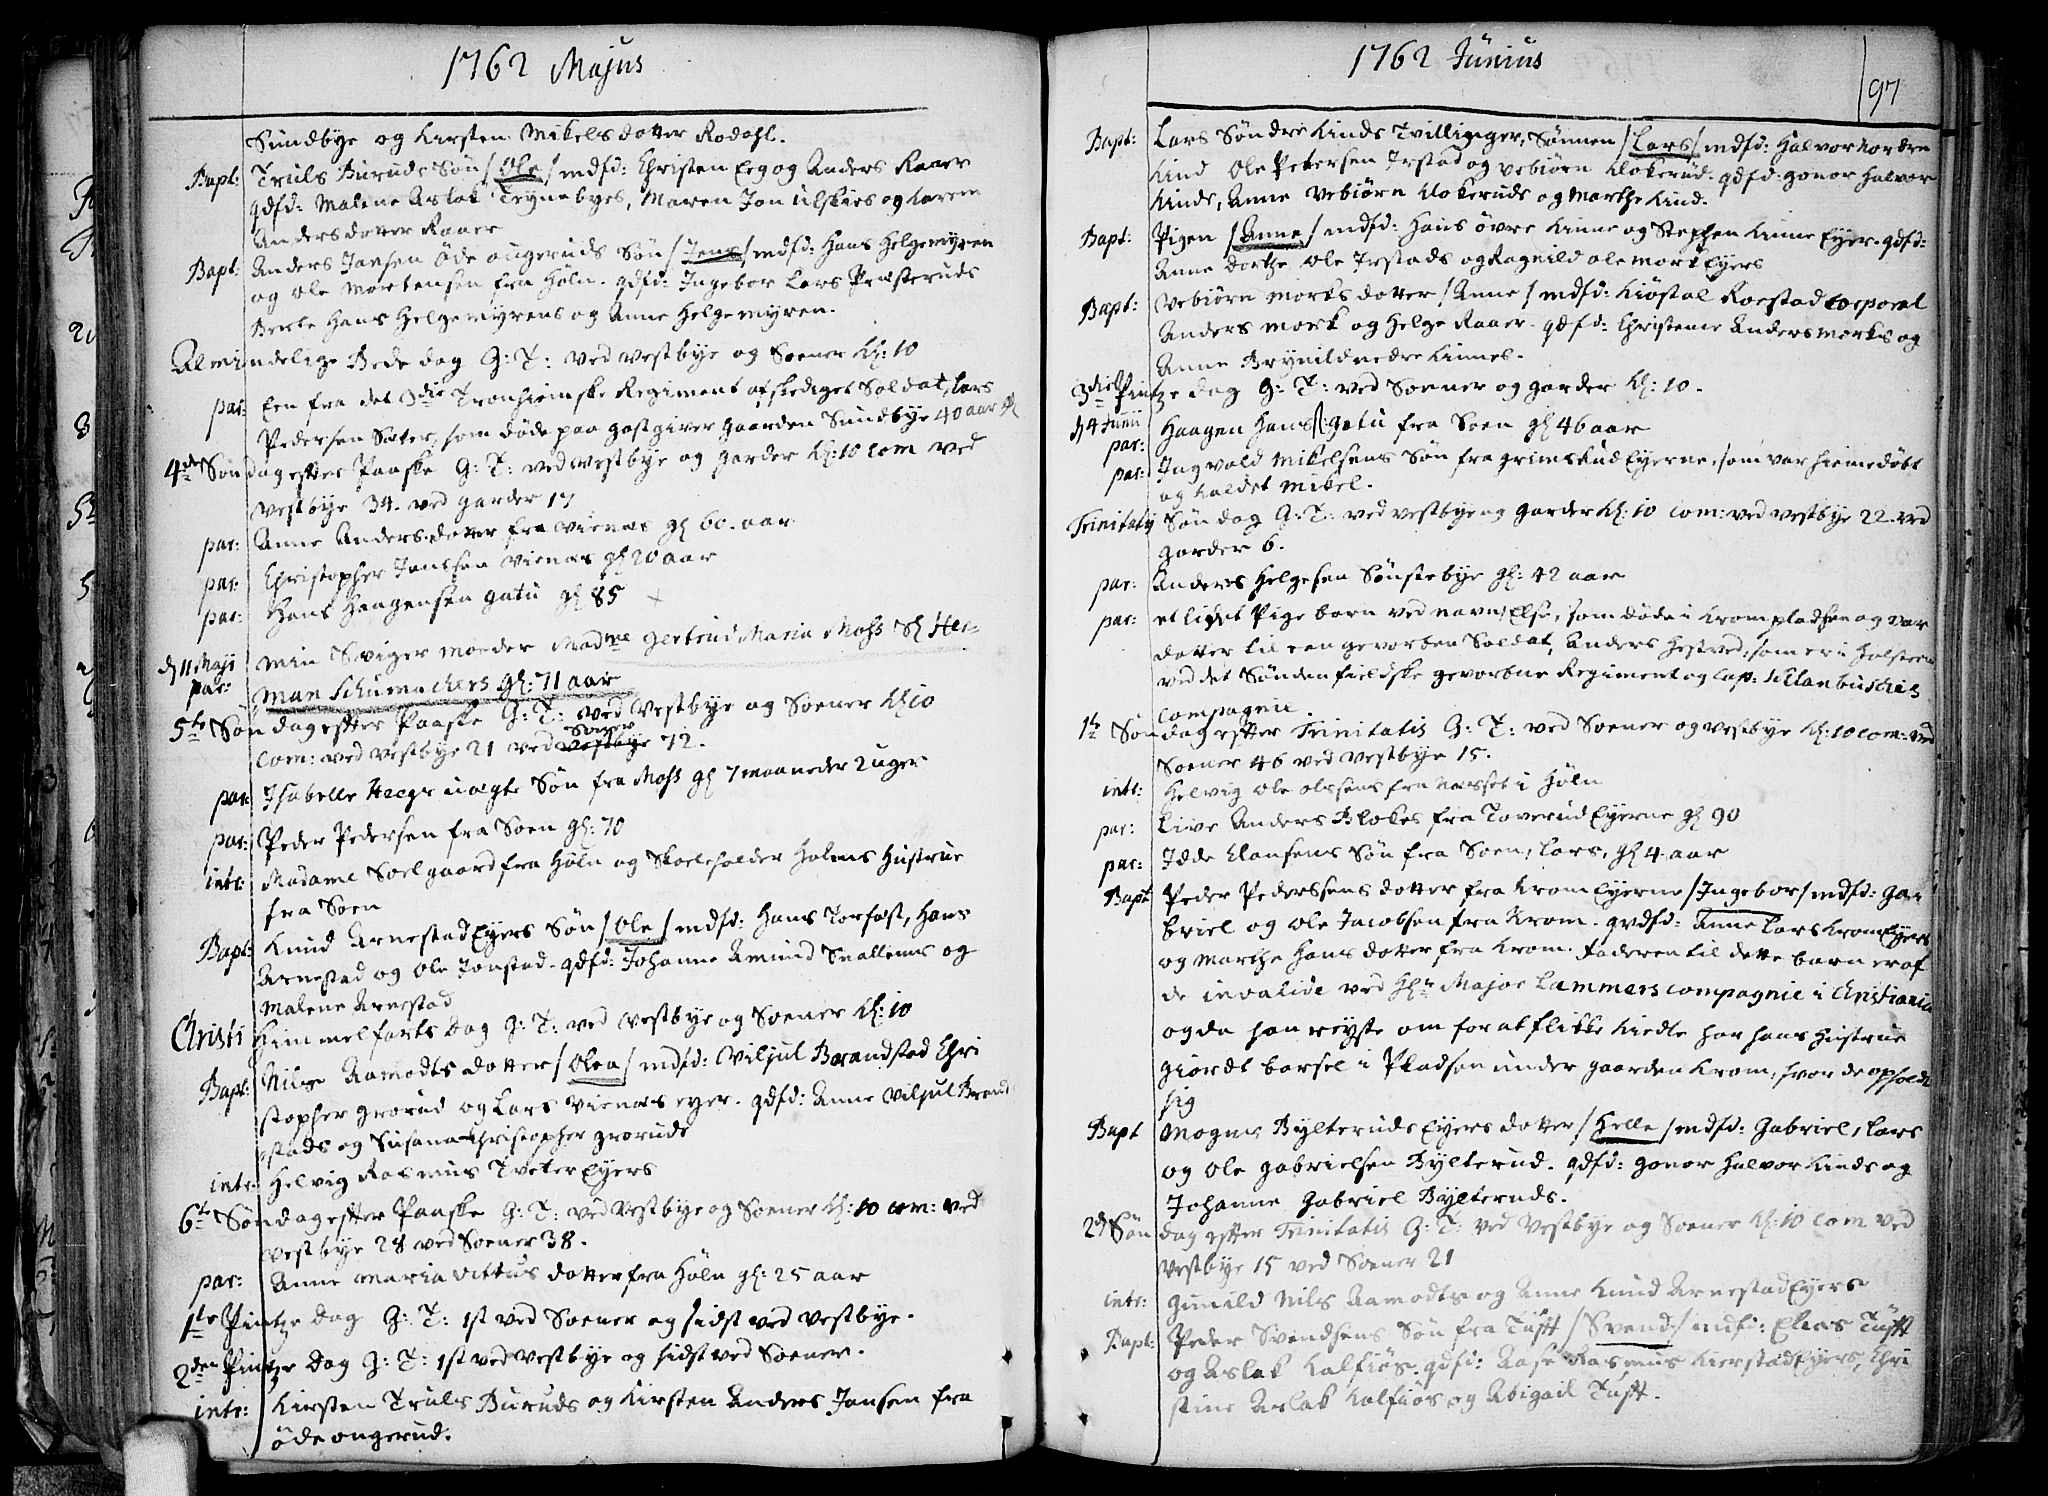 1762 Majus
Sundbye og Kirsten Mikelsdotter Rodahl.
Bapt: Truls Buruds Søn /Ole/ mdfd: Christen Eeg og Anders Raaer
qdfd: Malene Aslak Tegnebyes, Maren Jon Ulskies og Karen
Andersdotter Raaer
Bapt: Anders Jansen Øde ongeruds Søn /Jens/ mdfd: Hans Helgemyren
og Ole Mortensen fra Høln. qdfd: Ingebor Lars Præsteruds
Berte Hans Helgemyrens og Anne Helgemyren.
Almindelige Bede dag G: T: ved Vestbye og Soener Kl: 10
par: Een fra det 3die Tronhiemske Regiment afskediget Soldat, Lars
Pedersen Sæter, som døde paa gastgiver gaarden Sundbye 40 aar gl
4de Søndag efter Paaske G: T: ved Vestbye og Garder Kl: 10 Com ved
Vestbye 34. ved Garder 17
par: Anne Andersdotter fra Vienas gl 60. aar
par: Christopher Jonssen Vienas gl 20 aar
par: Hans Haagensen gatu gl 85
d 11 Maji Min Sviger moeder Madme Gertrud Maria Moss Sl Her=
par: man Schumachers gl: 71 aar
5te Søndag efter Paaske G: T: ved Vestbye og Soener Kl 10
Soener
Com: ved Vestbye 21 ved Vestbye 72.
par: Isabelle Heegs uægte Søn fra Moss gl 7 maaneder 2 uger
par: Peder Pedersen fra Soen gl: 70
intr: Madame Soelgaard fra Høln og Skoleholder Holms Hustrue
fra Soen
Bapt: Knud Arnestad Eyers Søn /Ole/ mdfd: Hans Torfast, Hans
Arnestad og Ole Jonstad. qdfd: Johanne Amund Snallems og
Malene Arnestad
Christi Himmelfarts Dag G: T: ved Vestbye og Soener Kl: 10
Bapt: Nils Aamodts dotter /Olea/ mdfd: Viljul Brandstad Chri
stopher Grorud og Lars Vienas eyer. qdfd: Anne Viljul Brand
stads og Susana Christopher Groruds
intr: Helvig Rasmus Tveter Eyers
6te Søndag efter Paaske G: T: ved Vestbye og Soener Kl: 10 Com: ved
Vestbye 28 ved Soener 38.
par: Anne Maria Vittus dotter fra Høln gl: 25 aar
1te Pintze Dag G: T: 1st ved Soener og sidst ved Vestbye.
2den Pintze Dag G: T: 1st ved Vestbye og sidst ved Soener.
intr: Kirsten Truls Buruds og Kirsten Anders Jansen fra
Øde ongerud.
1762 Junius
97
Bapt: Lars Søndre Kinds Tvillinger, Sønnen /Lars/ mdfd: Halvor Nordre
Kind Ole Petersen Irstad og Vebiørn Klokerud. qdfd: Gonor Halvor
Kinds, Anne Vebiørn Klokeruds og Marthe Kind.
Bapt: Pigen /Anne/ mdfd: Hans øvre Kinne og Stephen Kinne Eyer. qdfd:
Anne Dorthe Ole Irstads og Ragnild Ole Mork Eyers
Bapt: Vebiørn Morks dotter /Anne/ mdfd: Kiøstel Roestad Corporal
Anders Mork og Helge Raaer. qdfd: Christene Anders Morks og
Anne Brynild nedre Kinnes.
3die Pintze dag G: T: ved Soener og Garder Kl: 10.
d 4 Junii Haagen Hans S: gatu fra Soen gl 46 aar
par:
par: Ingvold Mikelsens Søn fra Grimsrud Eyerne, som var hiemedøbt
og kaldet Mikel.
Trinitatis Søndag G: T: ved Vestbye og Garder Kl: 10 Com: ved Vestbye 22. ved
Garder 6.
par: Anders Helgesen Sønstebye gl: 42 aar
par: et lidet Pige barn ved navn, Else, som døde i Krompladsen og var
dotter til een gevorben Soldat, Anders Hestved, som er i Holsteen
ved det Søndenfieldske gevorbne Regiment og Cap:
Compagnie.
1te Søndag efter Trinitatis G: T: ved Soener og Vestbye Kl: 10 Com: ved
Soener 46 ved Vestbye 15.
intr: Helvig Ole Olssens fra Næsset i Høln
par: Live Anders Blokes fra Toverud Eyerne gl 90
par: Idde Clausens Søn fra Soen, Lars, gl 4 aar
Bapt Peder Pederssens dotter fra Krom Eyerne /Ingebor/ mdfd: Ga
briel og Ole Jacobsen fra Krom. qvdfd: Anne Lars Krom Eyers
og Marthe Hansdotter fra Krom. Faderen til dette barn er af
de invalide ved Hr Major Lammers compagnie i Christiania
og da han reyste om for at flikke Kiedle har hans Hustrue
giordt barsel i Pladsen under gaarden Krom, hvor de opholdt
sig
Bapt Mogens Bylteruds Eyers dotter /Helle/ mdfd: Gabriel, Lars
og Ole Gabrielsen Bylterud. qdfd: Gonor Halvor Kinds og
Johanne Gabriel Bylteruds.
2d Søndag efter Trinitatis G: T: ved Vestbye og Soener Kl: 10 Com ved
Vestbye 15 ved Soener 21
intr: Gunild Nils Aamodts og Anne Knud Arnestad Eyers
Bapt: Peder Svendsens Søn fra Tufft /Svend/ mdfd: Elias Tufft
og Aslak Kalfiøs. qdfd: Aase Rasmus Kierstad Eyers, Chri
stine Aslak Kalfiøs og Abigail Tufft.